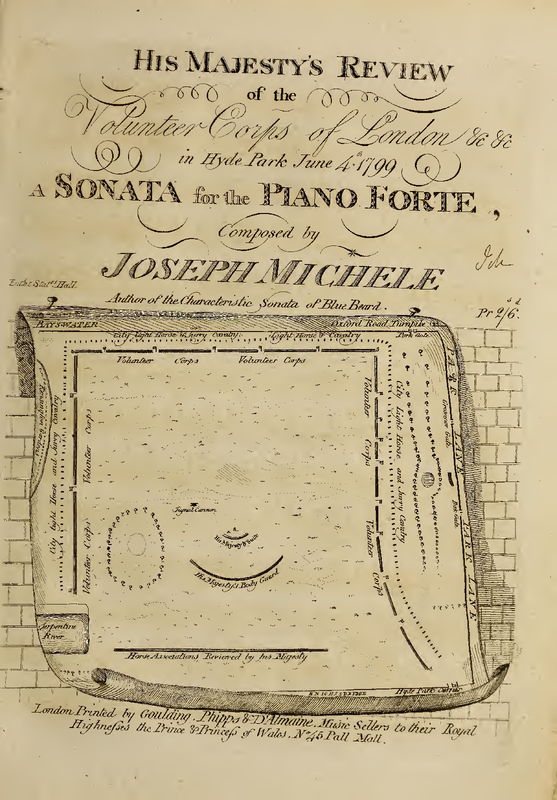 HIS MAJESTY'S REVIEW
of the
Volunteer Corps of London &c &c
in Hyde Park June 4th 1799
A SONATA for the PIANO FORTE,
Composed by
JOSEPH MICHELE
Ent.d at Sta.rs Hall.
Author of the Characteristic Sonata of Blue Beard.
Pr 2/6
BAYSWATER
Oxford Road Turnpike
City Light Horse & Surry Cavalry
Light Horse & Cavalry
Park Gate
Volunteer Corps
Volunteer Corps
PARK LANE
Grosvenor Gate
Kensington Gardens
City Light Horse and Surry Cavalry
Volunteer Corps
Volunteer Corps
City Light Horse and Surry Cavalry
Volunteer Corps
Volunteer Corps
PARK LANE
Signal Cannon
His Majesty & Suite
His Majesty's Body Guard
Serpentine
River
Horse Associations Reviewed by his Majesty
KNIGHTSBRIDGE
Hyde Park Corner
London Printed by Goulding, Phipps & D'Almaine. Music Sellers to their Royal
Highneſses the Prince & Princeſs of Wales. No. 45 Pall Mall.